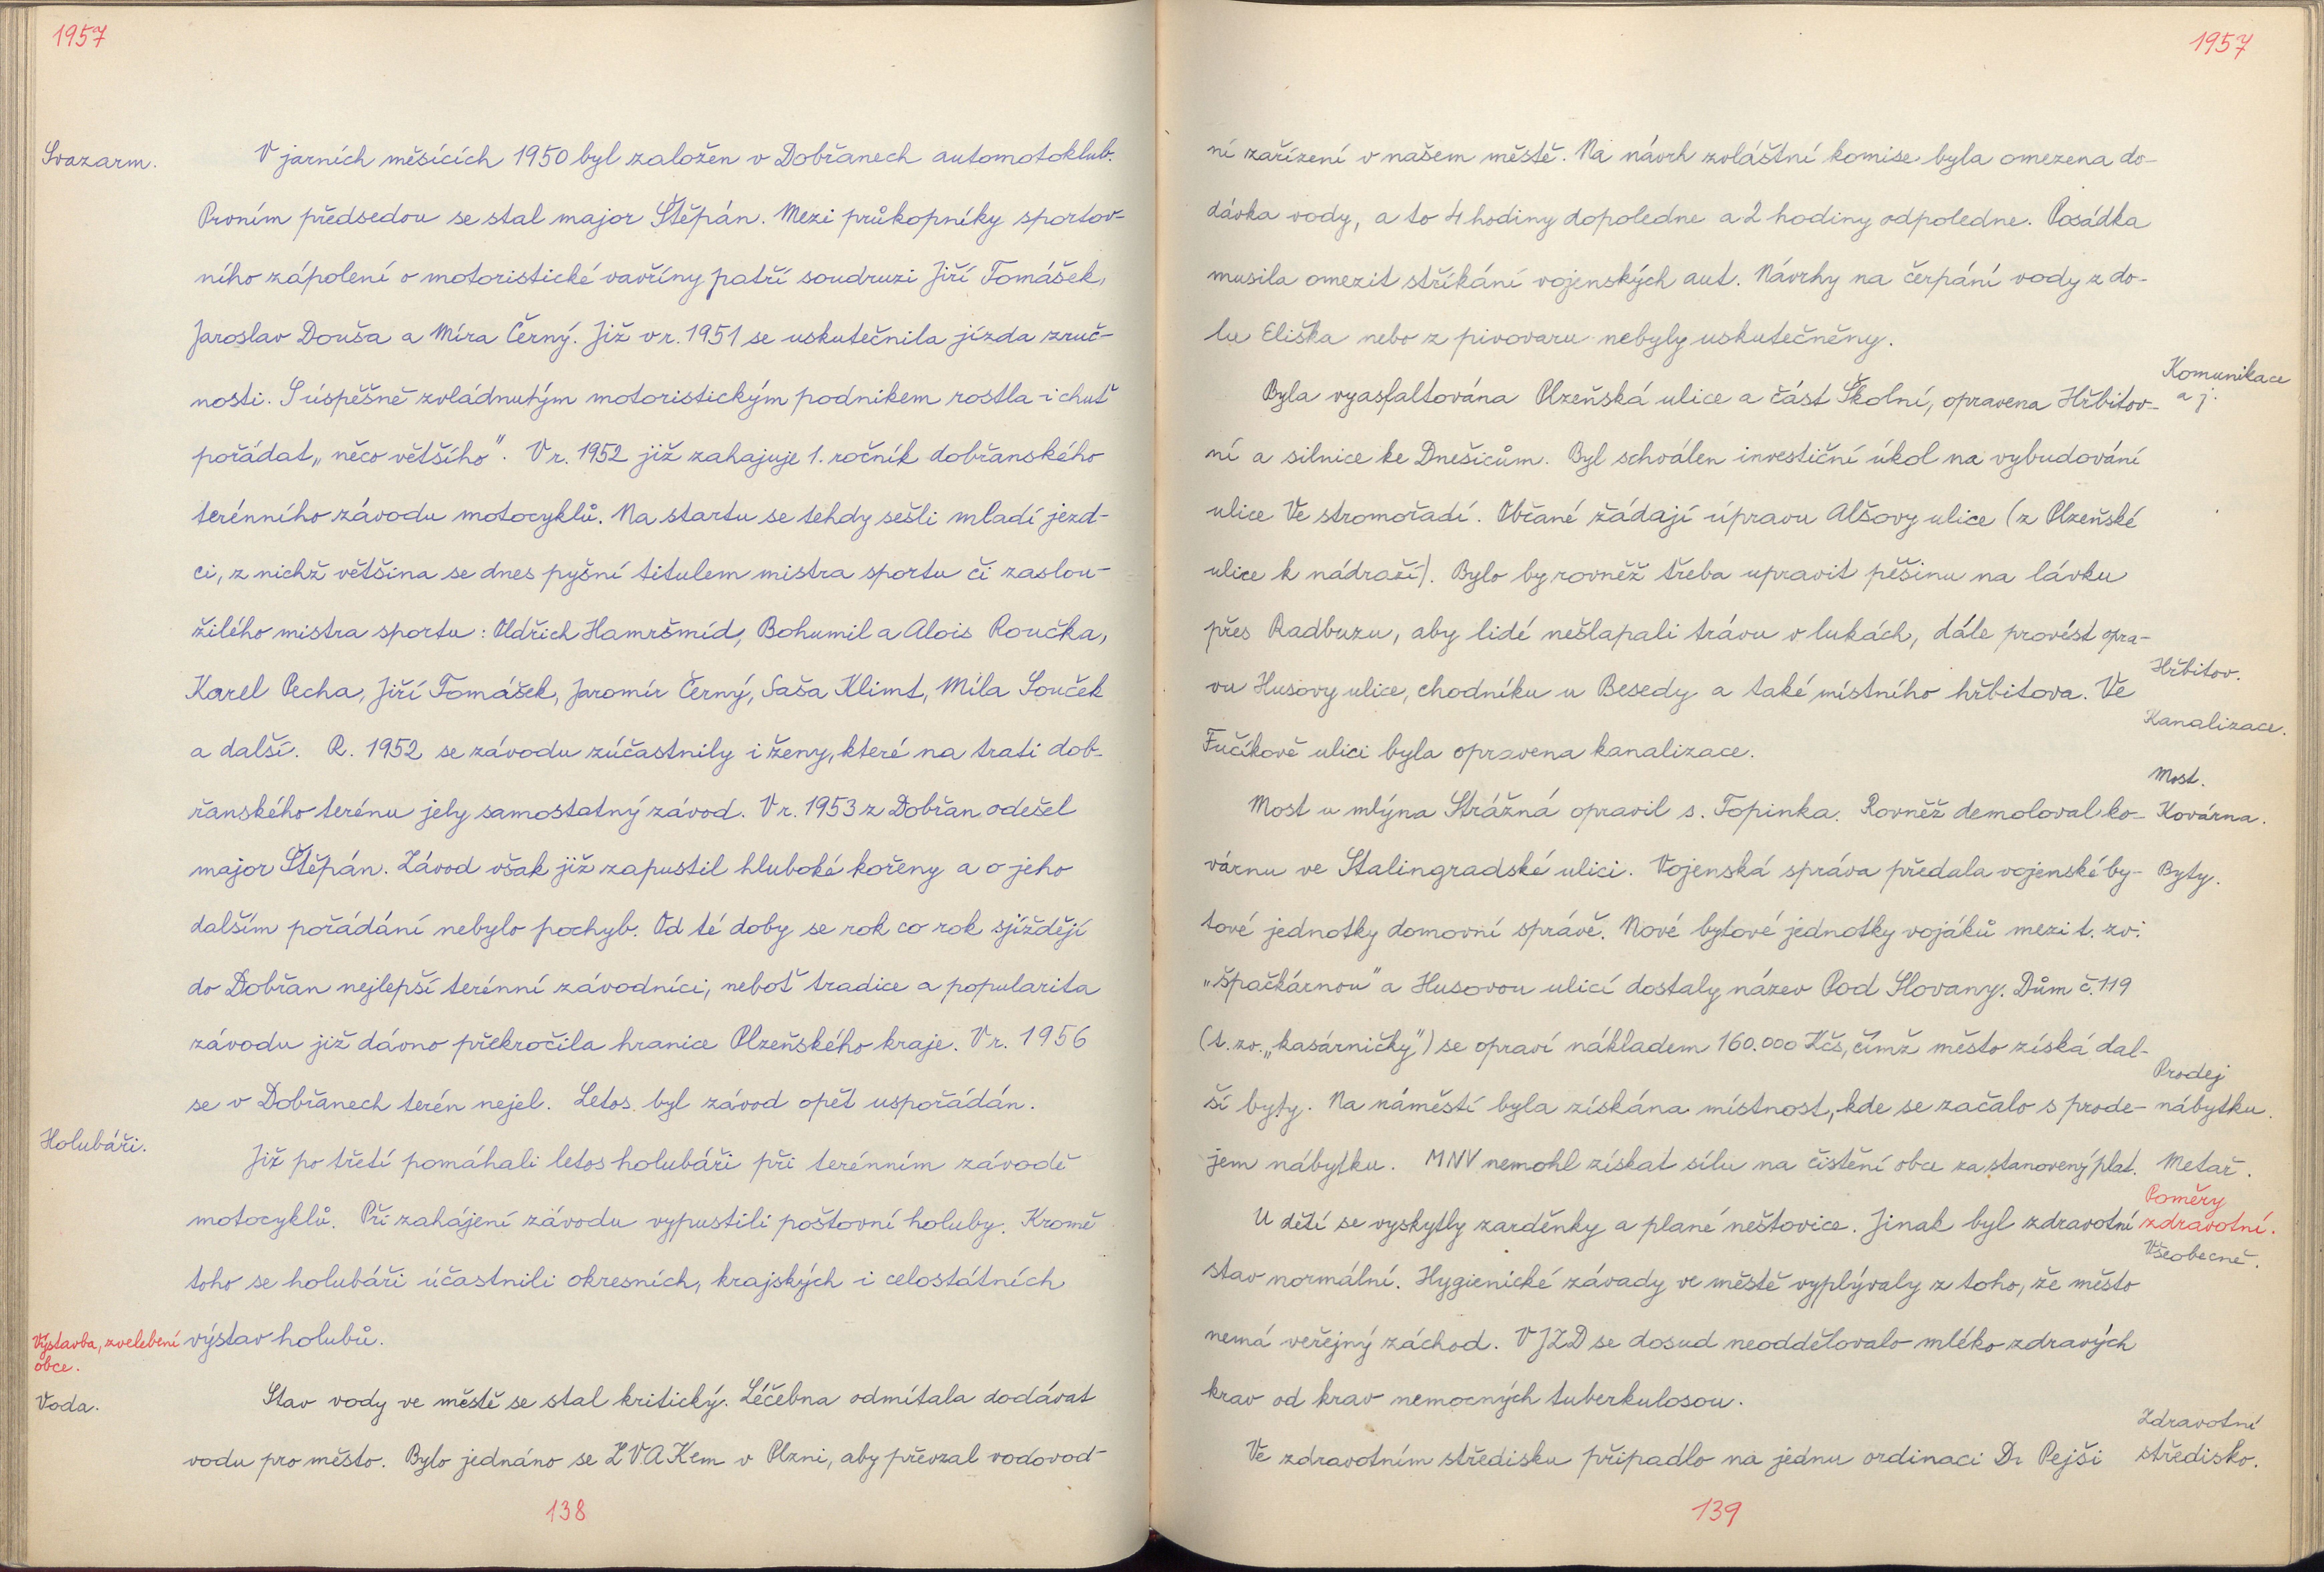 1957
Svazarm.
V jarních měsících 1950 byl založen v Dobřanech automotoklub.
Prvním předsedou se stal major Štěpán. Mezi průkopníky sportov-
ního zápolení o motoristické vavříny patří soudruzi Jiří Tomášek,
Jaroslav Douša a Míra Černý. Již v r. 1951 se uskutečnila jízda zruč-
nosti. S úspěšně zvládnutým motoristickým podnikem rostla i chuť
pořádat „něco většího". V r. 1952 již zahajuje 1. ročník dobřanského
terénního závodu motocyklů. Na startu se tehdy sešli mladí jezd-
ci, z nichž většina se dnes pyšní titulem mistra sportu či zaslou-
žilého mistra sportu: Oldřich Hamršmíd, Bohumil a Alois Roučka,
Karel Pecha, Jiří Tomášek, Jaromír Černý, Saša Klimt, Míla Souček
a další. R. 1952 se závodu zúčastnily i ženy, které na trati dob-
řanského terénu jely samostatný závod. V r. 1953 z Dobřan odešel
major Štěpán. Závod však již zapustil hluboké kořeny a o jeho
dalším pořádání nebylo pochyb. Od té doby se rok co rok sjíždějí
do Dobřan nejlepší terénní závodníci, neboť tradice a popularita
závodu již dávno překročila hranice Plzeňského kraje. V r. 1956
se v Dobřanech terén nejel. Letos byl závod opět uspořádán.
Holubáři.
Již po třetí pomáhali letos holubáři při terénním závodě
motocyklů. Při zahájení závodu vypustili poštovní holuby. Kromě
toho se holubáři účastnili okresních, krajských i celostátních
výstav holubů.
Výstavba, zvelebení
obce.
Voda.
Stav vody ve městě se stal kritický. Léčebna odmítala dodávat
vodu pro město. Bylo jednáno se ZVAKem v Plzni, aby převzal vodovod-
138
1957
ní zařízení v našem městě. Na návrh zvláštní komise byla omezena do-
dávka vody, a to 4 hodiny dopoledne a 2 hodiny odpoledne. Posádka
musila omezit stříkání vojenských aut. Návrhy na čerpání vody z do-
lu Eliška nebo z pivovaru nebyly uskutečněny.
Komunikace
a j.
Byla vyasfaltována Plzeňská ulice a část Školní, opravena Hřbitov-
ní a silnice ke Dnešicům. Byl schválen investiční úkol na vybudování
ulice Ve stromořadí. Občané žádají úpravu Alšovy ulice (z Plzeňské
ulice k nádraží). Bylo by rovněž třeba upravit pěšinu na lávku
přes Radbuzu, aby lidé nešlapali trávu v lukách, dále provést opra-
Hřbitov.
vu Husovy ulice, chodníku u Besedy a také místního hřbitova. Ve
Kanalizace.
Fučíkově ulici byla opravena kanalizace.
Most.
Most u mlýna Strážná opravil s. Topinka. Rovněž demoloval ko-
Kovárna.
várnu ve Stalingradské ulici. Vojenská správa předala vojenské by-
Byty.
tové jednotky domovní správě. Nové bytové jednotky vojáků mezi t. zv.
„špačkárnou" a Husovou ulicí dostaly název Pod Slovany. Dům č. 119
(t. zv. „kasárničky") se opraví nákladem 160.000 Kčs, čímž město získá dal-
Prodej
ší byty. Na náměstí byla získána místnost, kde se začalo s prode-
nábytku.
jem nábytku. MNV nemohl získat sílu na čistění obce za stanovený plat.
Metař.
Poměry
zdravotní.
U dětí se vyskytly zarděnky a plané neštovice. Jinak byl zdravotní
Všeobecně.
stav normální. Hygienické závady ve městě vyplývaly z toho, že město
nemá veřejný záchod. V JZD se dosud neoddělovalo mléko zdravých
krav od krav nemocných tuberkulosou.
Zdravotní
středisko.
Ve zdravotním středisku připadlo na jednu ordinaci Dr Pejši
139